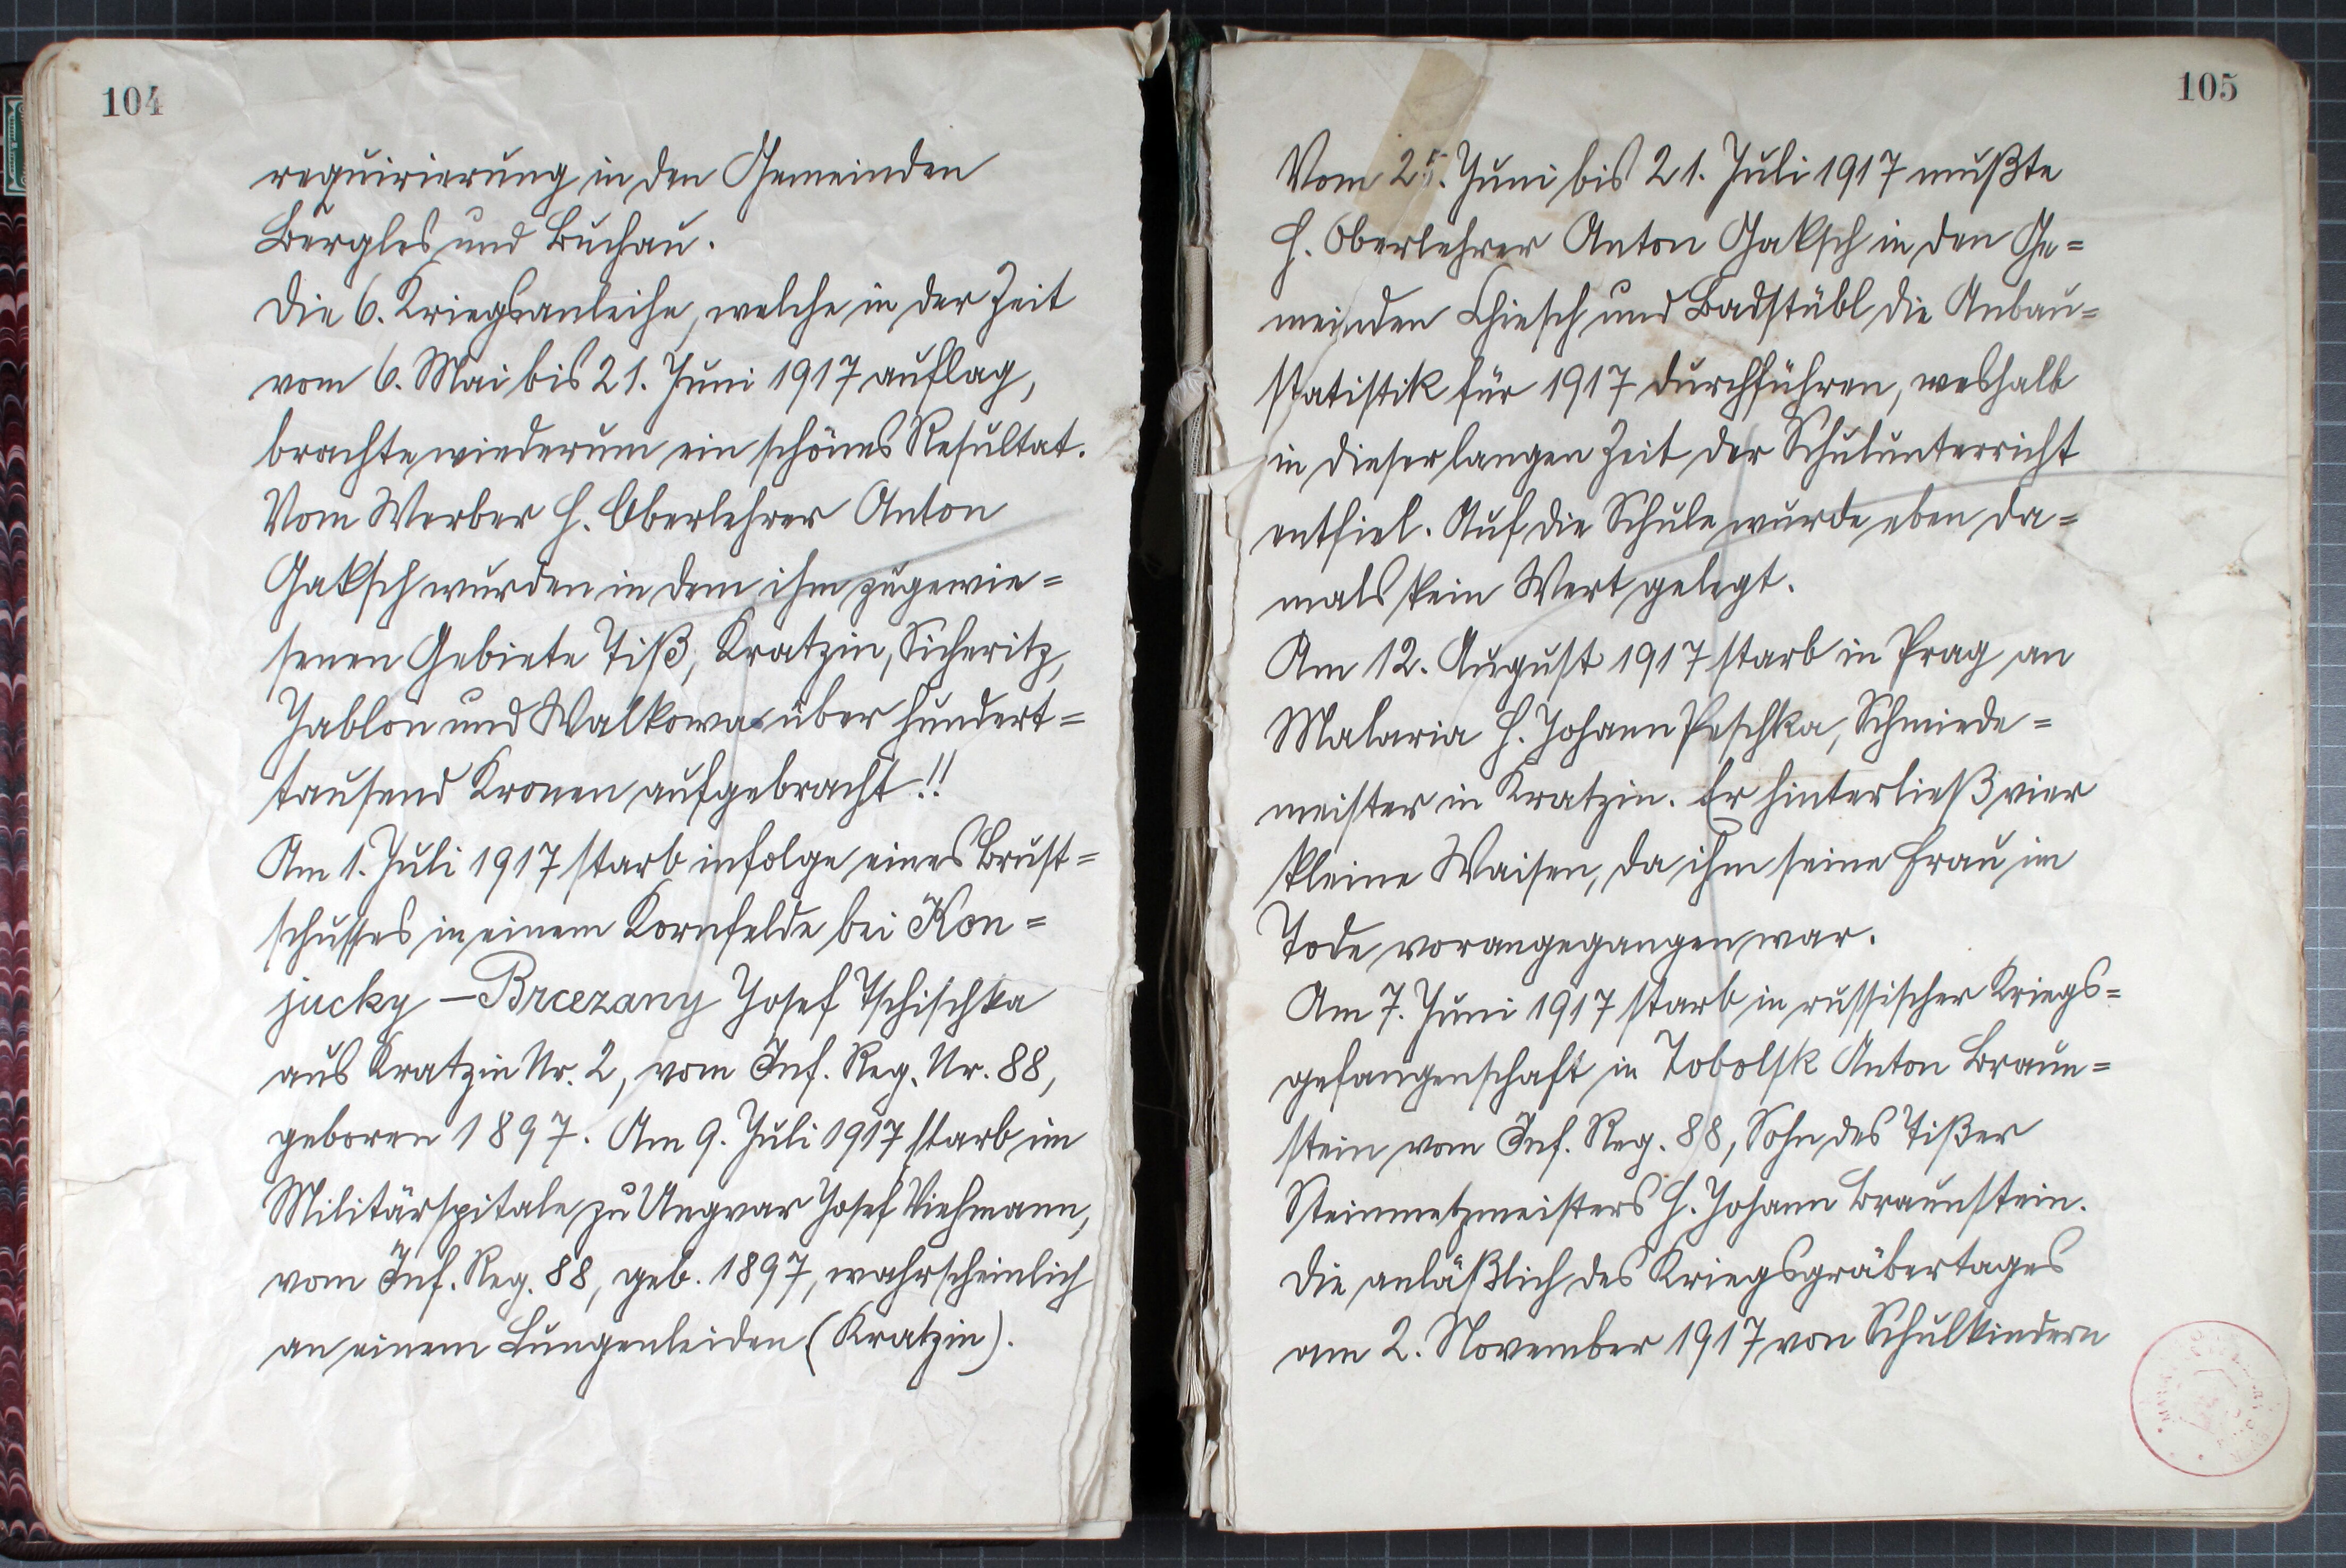 104
requirierung in den Gemeinden
Bergles und Buchau.
Die 6. Kriegsanleihe, welche in der Zeit
vom 6. Mai bis 21. Juni 1917 auflag,
brachte wiederum ein schönes Resultat.
Vom Werber H. Oberlehrer Anton
Gaksch wurden in dem ihm zugewie=
senen Gebiete Tiß, Kratzin, Sicheritz,
Jablon und Walkowa über hundert=
tausend Kronen aufgebracht!!
Am 1. Juli 1917 starb infolge eines Brust=
schusses in einem Kornfelde bei Kon=
jucky – Brcezany Josef Tschischka
aus Kratzin Nr. 2, vom Inf. Reg. Nr. 88,
geboren 1897. Am 9. Juli 1917 starb im
Militärspitale zu Ungvar Josef Viehmann,
vom Inf. Reg. 88, geb. 1897, wahrscheinlich
an einem Lungenleiden (Kratzin).
105
Vom 25. Juni bis 21. Juli 1917 mußte
H. Oberlehrer Anton Gaksch in den Ge=
meinden Chiesch und Badstübl die Anbau=
statistik für 1917 durchführen, weshalb
in dieser langen Zeit der Schulunterricht
entfiel. Auf die Schule wurde eben da=
mals kein Wert gelegt.
Am 12. August 1917 starb in Prag an
Malaria H. Johann Peschka, Schmiede=
meister in Kratzin. Er hinterließ vier
kleine Waisen, da ihm seine Frau im
Tode vorangegangen war.
Am 7. Juni 1917 starb in russischer Kriegs=
gefangenschaft in Tobolsk Anton Braun=
stein vom Inf. Reg. 88, Sohn des Tißer
Steinmetzmeisters H. Johann Braunstein.
Die anläßlich des Kriegsgräbertages
am 2. November 1917 von Schulkindern